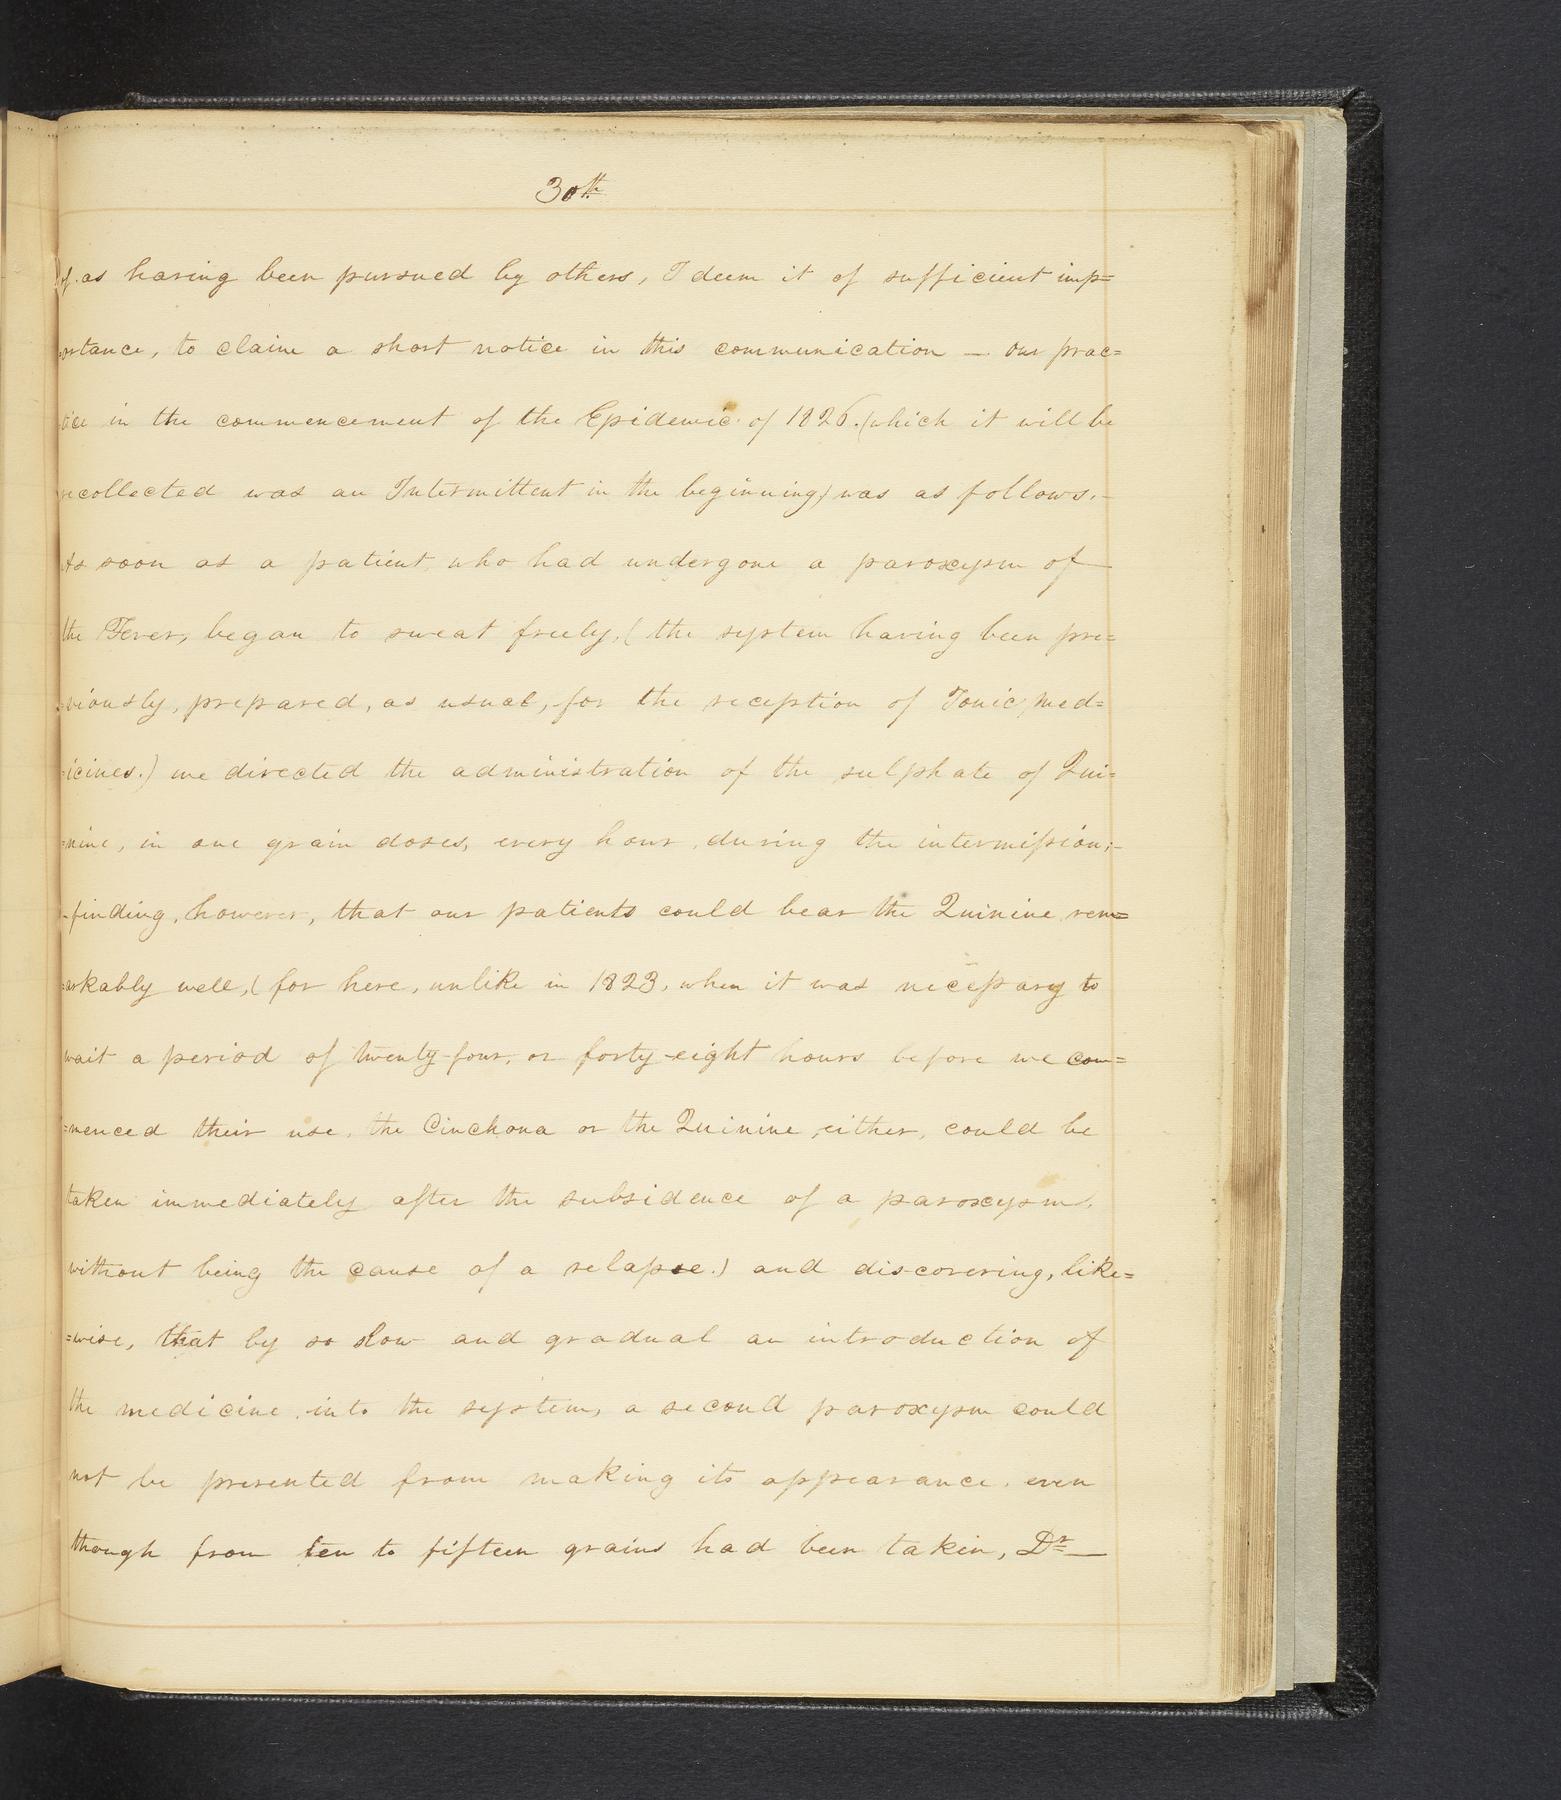 30th
of as having been pursued by others, I deem it of sufficient imp=
=ortance, to claim a short notice in this communication — our prac=
=tice in the commencement of the Epidemic of 1826. (which it will be
recollected was an Intermittent in the beginning) was as follows. —
As soon as a patient who had undergone a paroxysm of
the Fever, began to sweat freely, (the system having been pre=
=viously, prepared, as usual, for the reception of Tonic med=
=icines.) we directed the administration of the sulphate of Qui=
=nine, in one grain doses, every hour, during the intermission; —
-finding, however, that our patients could bear the Quinine rem=
=arkably well, (for here, unlike in 1823, when it was necessary to
wait a period of twenty-four, or forty-eight hours before we com=
=menced their use, the Cinchona or the Quinine, either, could be
taken immediately after the subsidence of a paroxysm,
without being the cause of a relapse.) and discovering, like=
=wise, that by so slow and gradual an introduction of
the medicine into the system, a second paroxysm could
not be prevented from making its appearance, even
though from ten to fifteen grains had been taken, Dr —